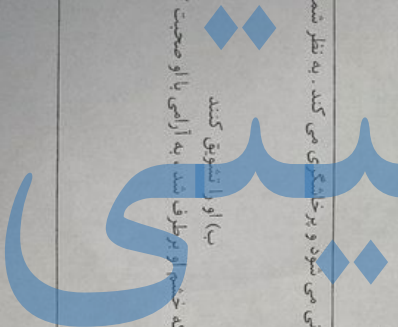 می شود و پرخاشگری می کند . به نظر
ب) او را تشویق کنند
که خشم او برطرف شد ، به آرامی با او صحبت
یتی